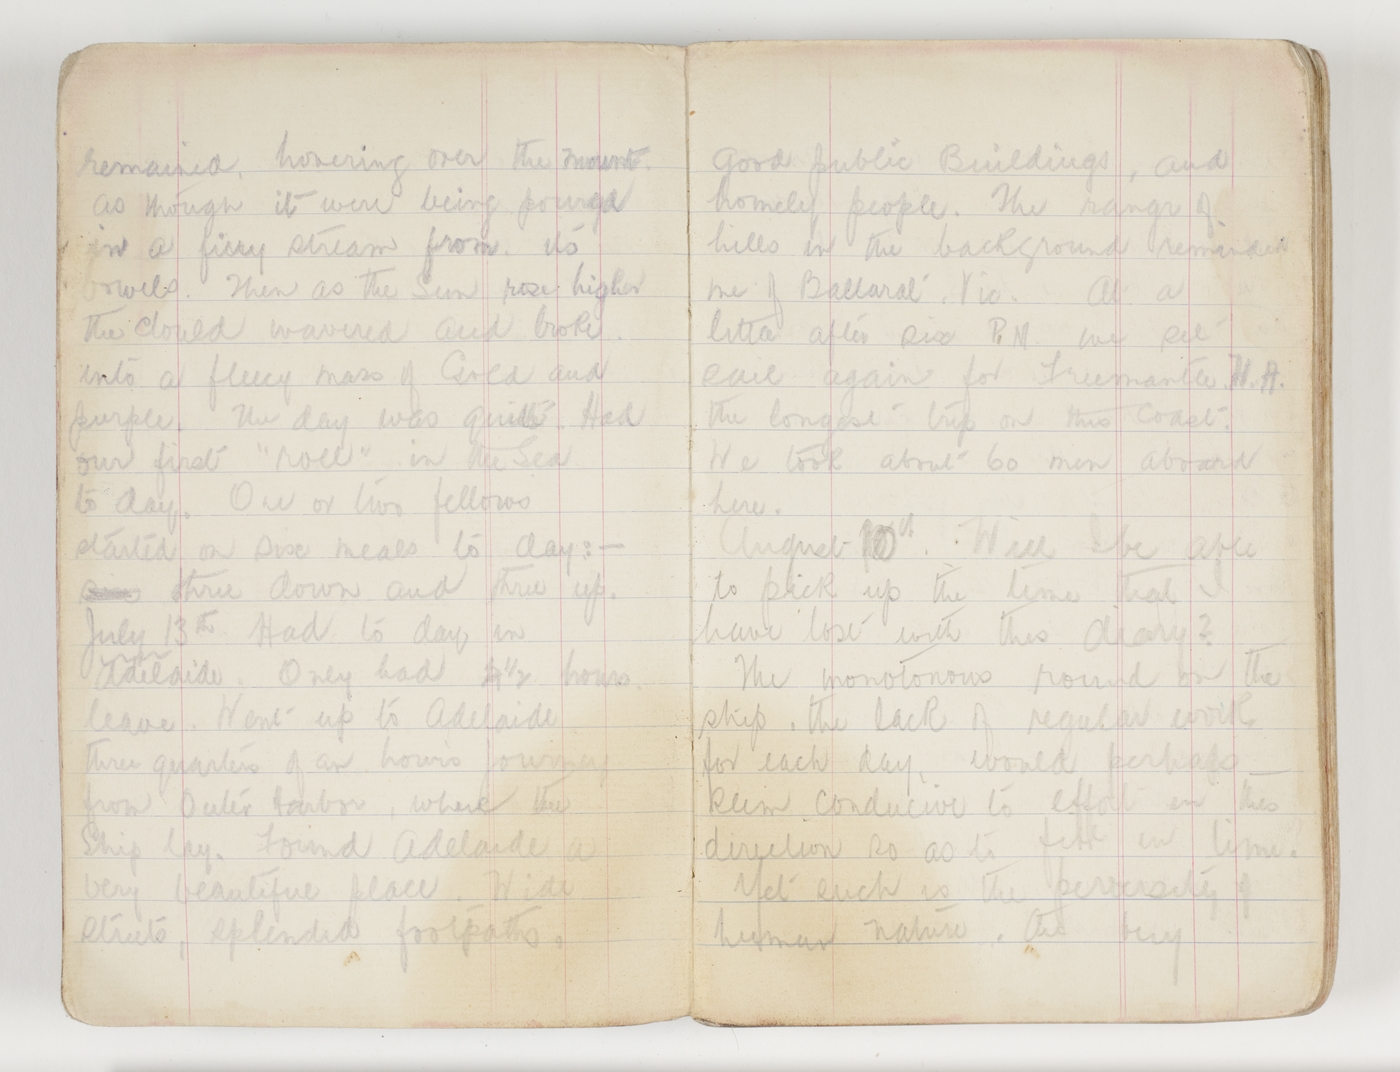 remained, hovering over the mount.
as though it were being poured
in a firey stream from. its
bowels. Then as the Sun rose higher
the clould wavered and broke.
into a fleecy mass of Gold and
purple. The day was quite. Had
our first "roll" in the Sea
to day. One or two fellows
started on six meals to day:—
three down and three up.
July 13th Had to day in
Adelaide. Only had 4½ hours.
leave. Went up to Adelaide
three quarters of an hours journey
from Outer Harbor, where the
Ship lay. Found Adelaide a
very beautiful place. Wide
streets, splended footpaths.
Good public Buildings, and
homely people. The range of
hills in the background reminded
me of Ballarat. Vic. At a
little after six P.M. we set
sail again for Freemantle. W.A.
the longest trip on this Coast.
We took about 60 men aboard
here.
August 10th. Will I be able
to pick up the time that I
have lost with this diary?
The monotonous round on the
ship, the lack of regular work
for each day, would perhaps
seem conducive to effort in this
direction so as to fill in time.
Yet such is the perversity of
human nature, the very